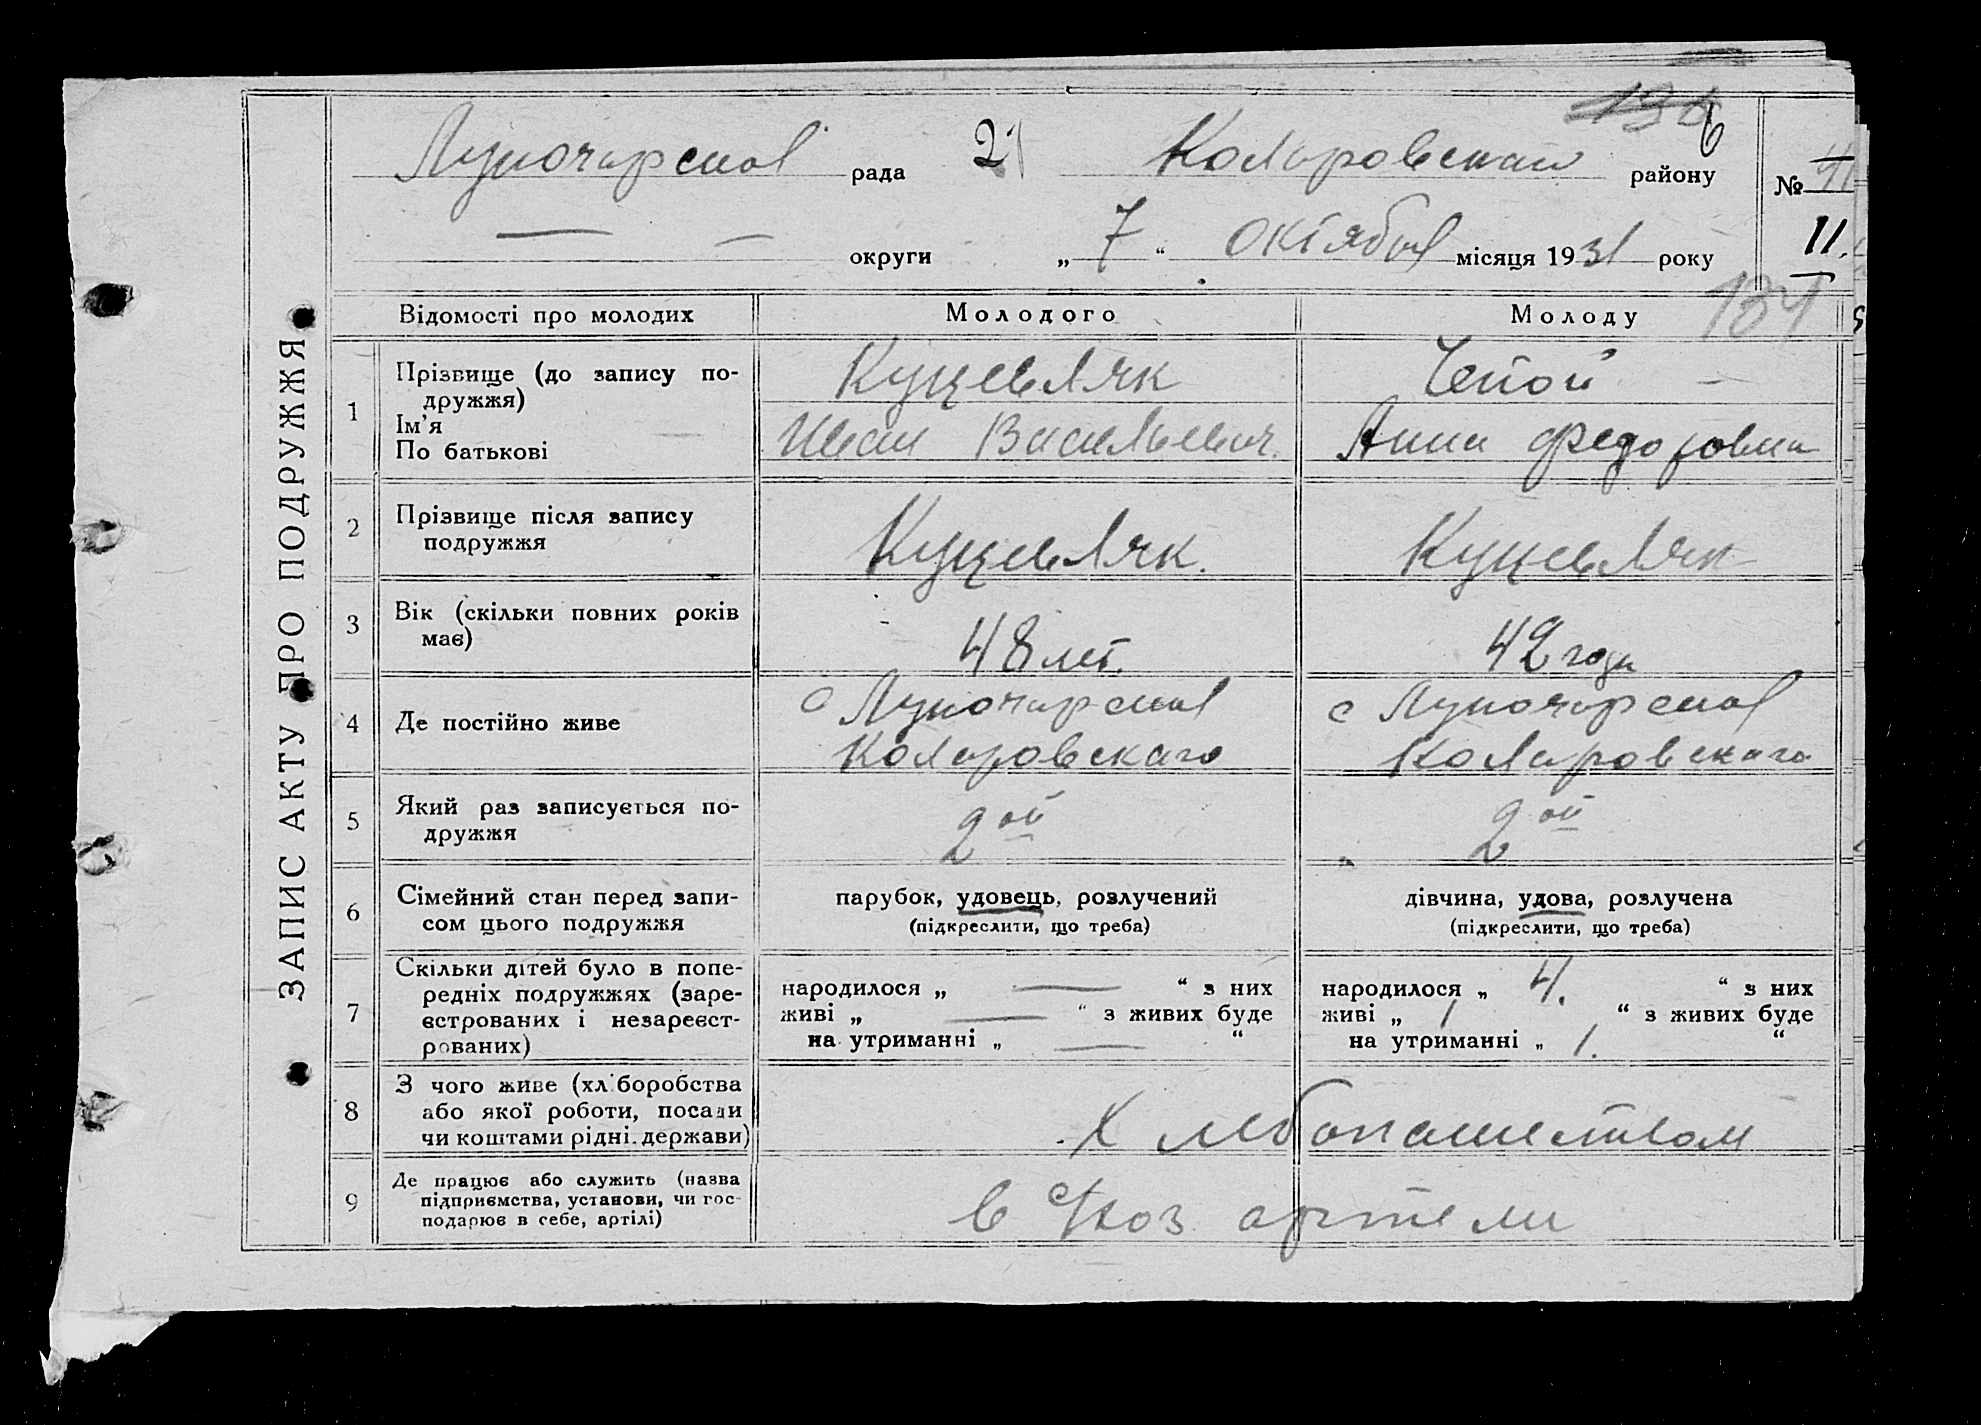 ЗАПИС АКТУ ПРО ПОДРУЖЖЯ
Луночарская рада 21 Коларовского району № 41
— — округи „ 7 “ Октября місяця 1931 року 11.
134
Відомості про молодих Молодого Молоду
1 Прізвище (до запису по-
дружжя)
Ім’я
По батькові
Куцевляк
Иван Васильевич.
Чепой —
Анна Федоровна
2 Прізвище після запису
подружжя
Куцевляк.
Куцевляк
3 Вік (скільки повних років
має)
48 лет.
42 года
4 Де постійно живе
с Луночарская
Коларовскаго
с Луночарская
Коларовскаго
5 Який раз записується по-
дружжя
2 ой
2 ой
6 Сімейний стан перед запи-
сом цього подружжя
парубок, удовець, розлучений
(підкреслити, що треба)
дівчина, удова, розлучена
(підкреслити, що треба)
7 Скільки дітей було в попе-
редніх подружжях (заре-
єстрованих і незареєст-
рованих)
народилося „ — “ з них
живі „ — “ з живих буде
на утриманні „ — “
народилося „ 4. “ з них
живі „ 1 “ з живих буде
на утриманні „ 1. “
8 З чого живе (хліборобства
або якої роботи, посади
чи коштами рідні, держави)
Хлебопашеством
9 Де працює або служить (назва
підприємства, установи, чи гос-
подарює в себе, артілі)
в с/хоз артели